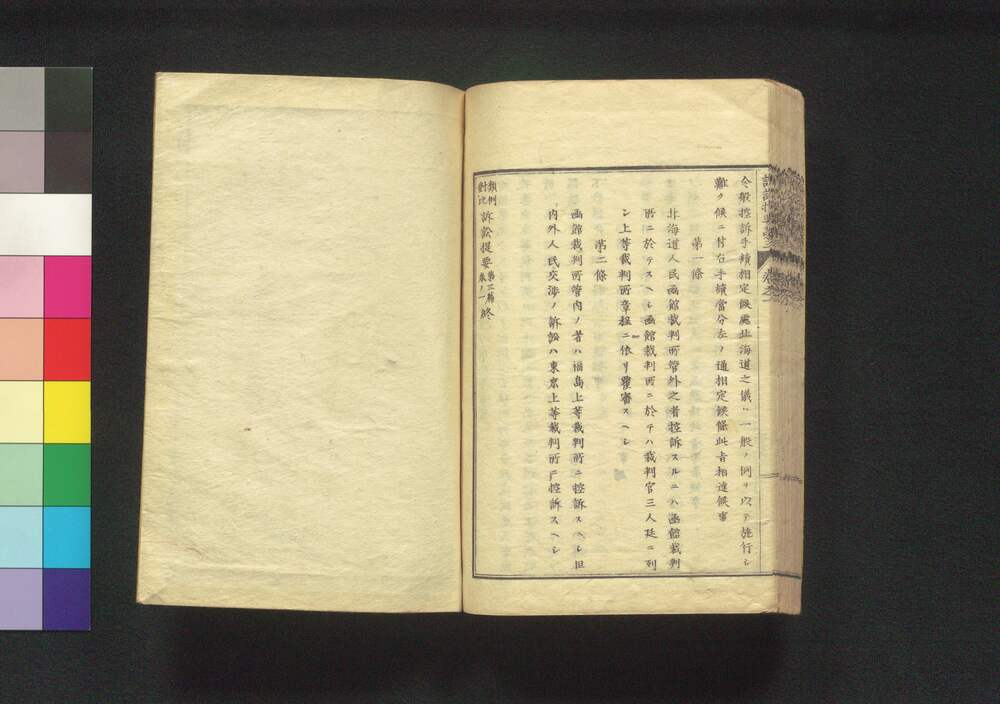 今般控訴手續相定候處北海道之儀ハ一般ノ例ヲ以テ施行シ
難ク候ニ付右手續當分左ノ通相定候條此旨相達候事
第一條
北海道人民函館裁判所管外之者控訴スルニハ函館裁判
所ニ於テスヘシ函館裁判所ニ於テハ裁判官三人廷ニ列
シ上等裁判所章程ニ依リ覆審スヘシ
第二條
函館裁判所管内ノ者ハ福島上等裁判所ニ控訴スヘシ但
内外人民交渉ノ訴訟ハ東京上等裁判所ニ控訴スヘシ
類例對比訴訟提要第二編卷ノ一終